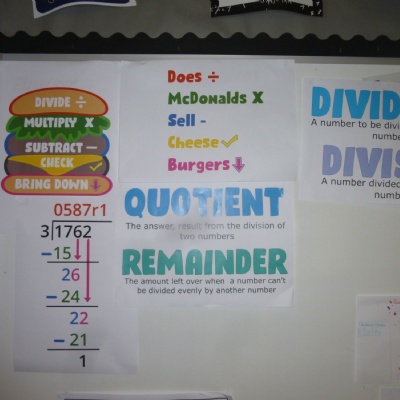 DIVIDE ÷
MULTIPLY X
SUBTRACT —
CHECK ✓
BRING DOWN ↓
0587r1
3 1762
– 15
26
– 24
22
– 21
1
Does ÷
McDonalds X
Sell -
Cheese ✓
Burgers ↓
QUOTIENT
The answer, result from the division of
two numbers
REMAINDER
The amount left over when a number can't
be divided evenly by another number
DIVID
A number to be divi
numbe
DIVIS
A number divided
numb